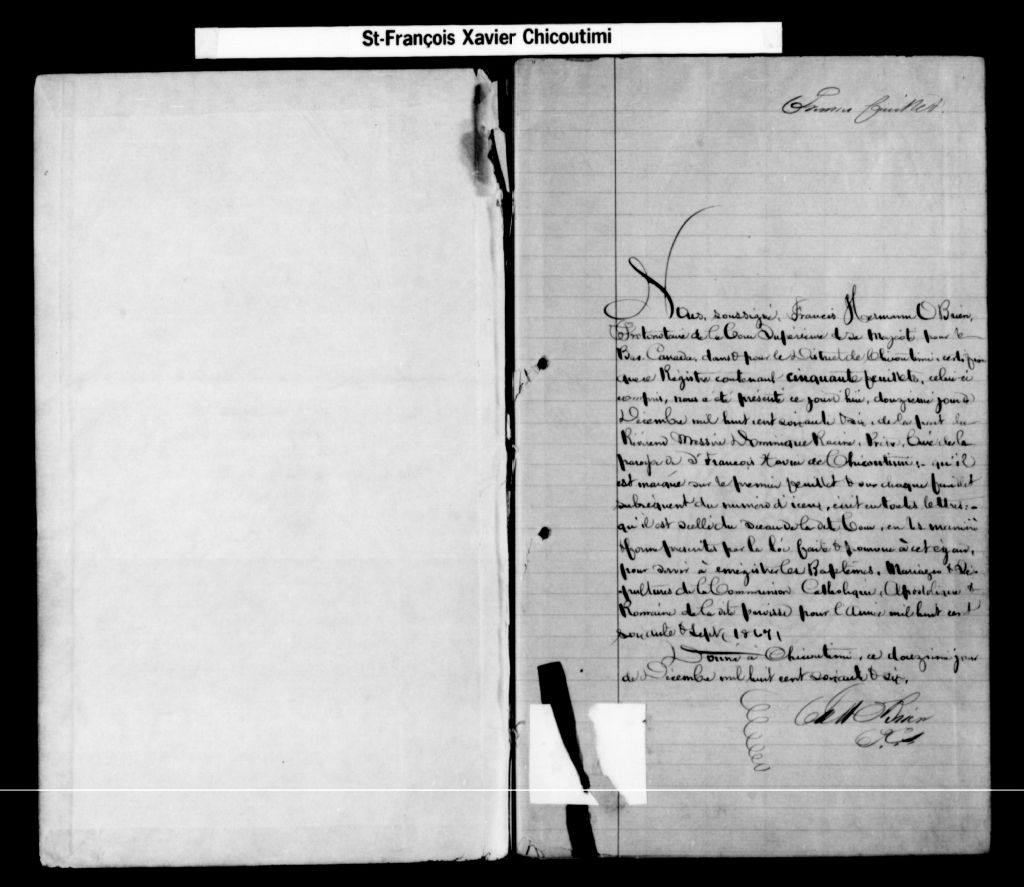 St-François Xavier Chicoutimi
Premier feuillet.
Nous, soussigné, Francis Hermann OBrien,
Protonotaire de la Cour Supérieure de Sa Majesté pour le
Bas-Canada, dans & pour le District de Chicoutimi, certifions
que ce Régistre contenant cinquante feuillets, celui-ci
compris, nous a été présenté ce jourd'hui, douzieme jour de
Décembre mil huit cent soixante & six, de la part du
Révérend Messire Dominique Racine, Ptre, Curé de la
paroisse de St François Xavier de Chicoutimi; qu'il
est marqué sur le premier feuillet & sur chaque feuillet
subséquent du numéro d'iceux, écrit en toutes lettres; -
qu'il est scellé du Sceau de la dite Cour, en la manière
& forme prescrites par la loi faite & pourvue à cet égard,
pour servir à enrégistrer les Baptêmes, Mariages & Sé-
pultures de la Communion Catholique, Apostolique &
Romaine de la dite paroisse pour l'Année mil huit cent
soixante & sept, 1867,
Donné à Chicoutimi, ce douzième jour
de Décembre mil huit cent soixante & six.
OBrien